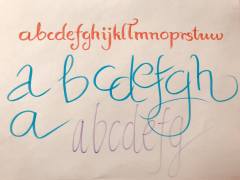 abcdefghijklmnoprstuw
a bcdefgh
a
abcdefg